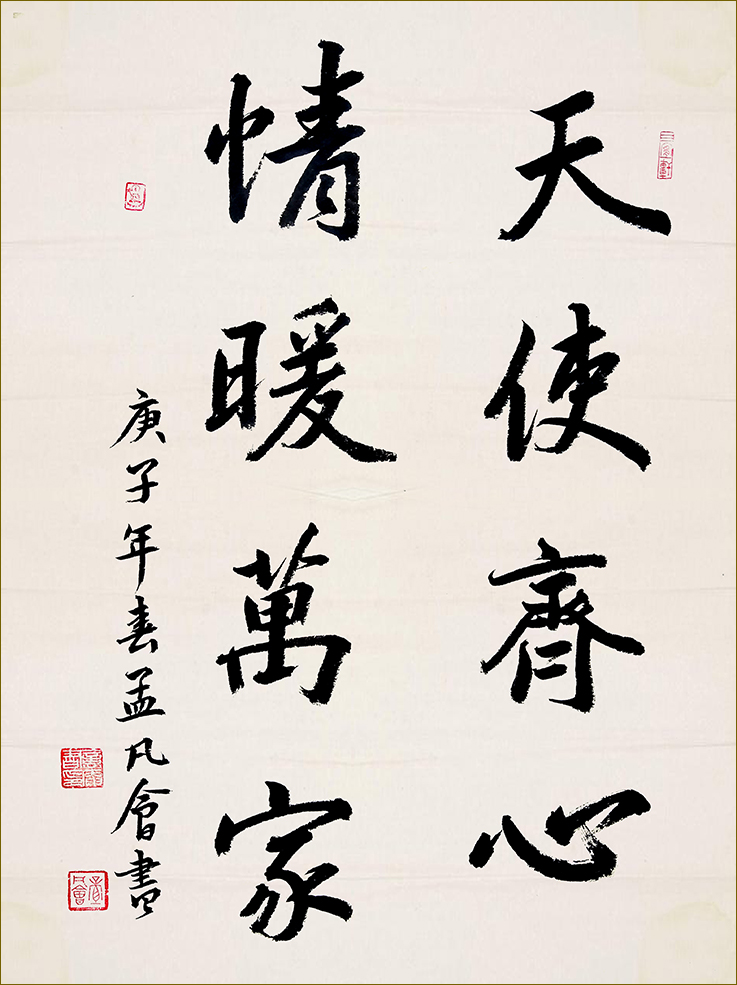 天使齊心
情暖萬家
庚子年春孟凡會書